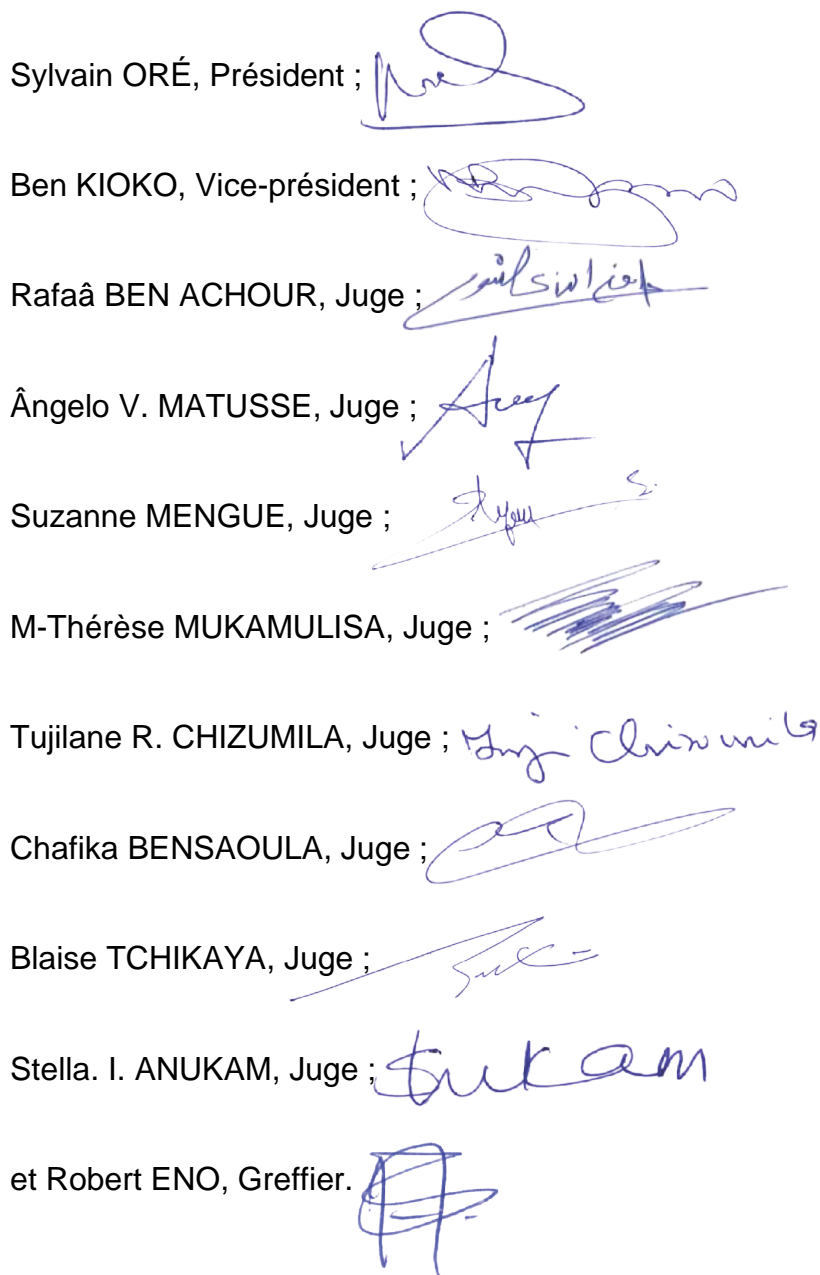 Sylvain ORÉ, Président ;
Ben KIOKO, Vice-président ;
Rafaâ BEN ACHOUR, Juge ;
Ângelo V. MATUSSE, Juge ;
Suzanne MENGUE, Juge ;
M-Thérèse MUKAMULISA, Juge ;
Tujilane R. CHIZUMILA, Juge ;
Chafika BENSAOULA, Juge ;
Blaise TCHIKAYA, Juge ;
Stella. I. ANUKAM, Juge ;
et Robert ENO, Greffier.